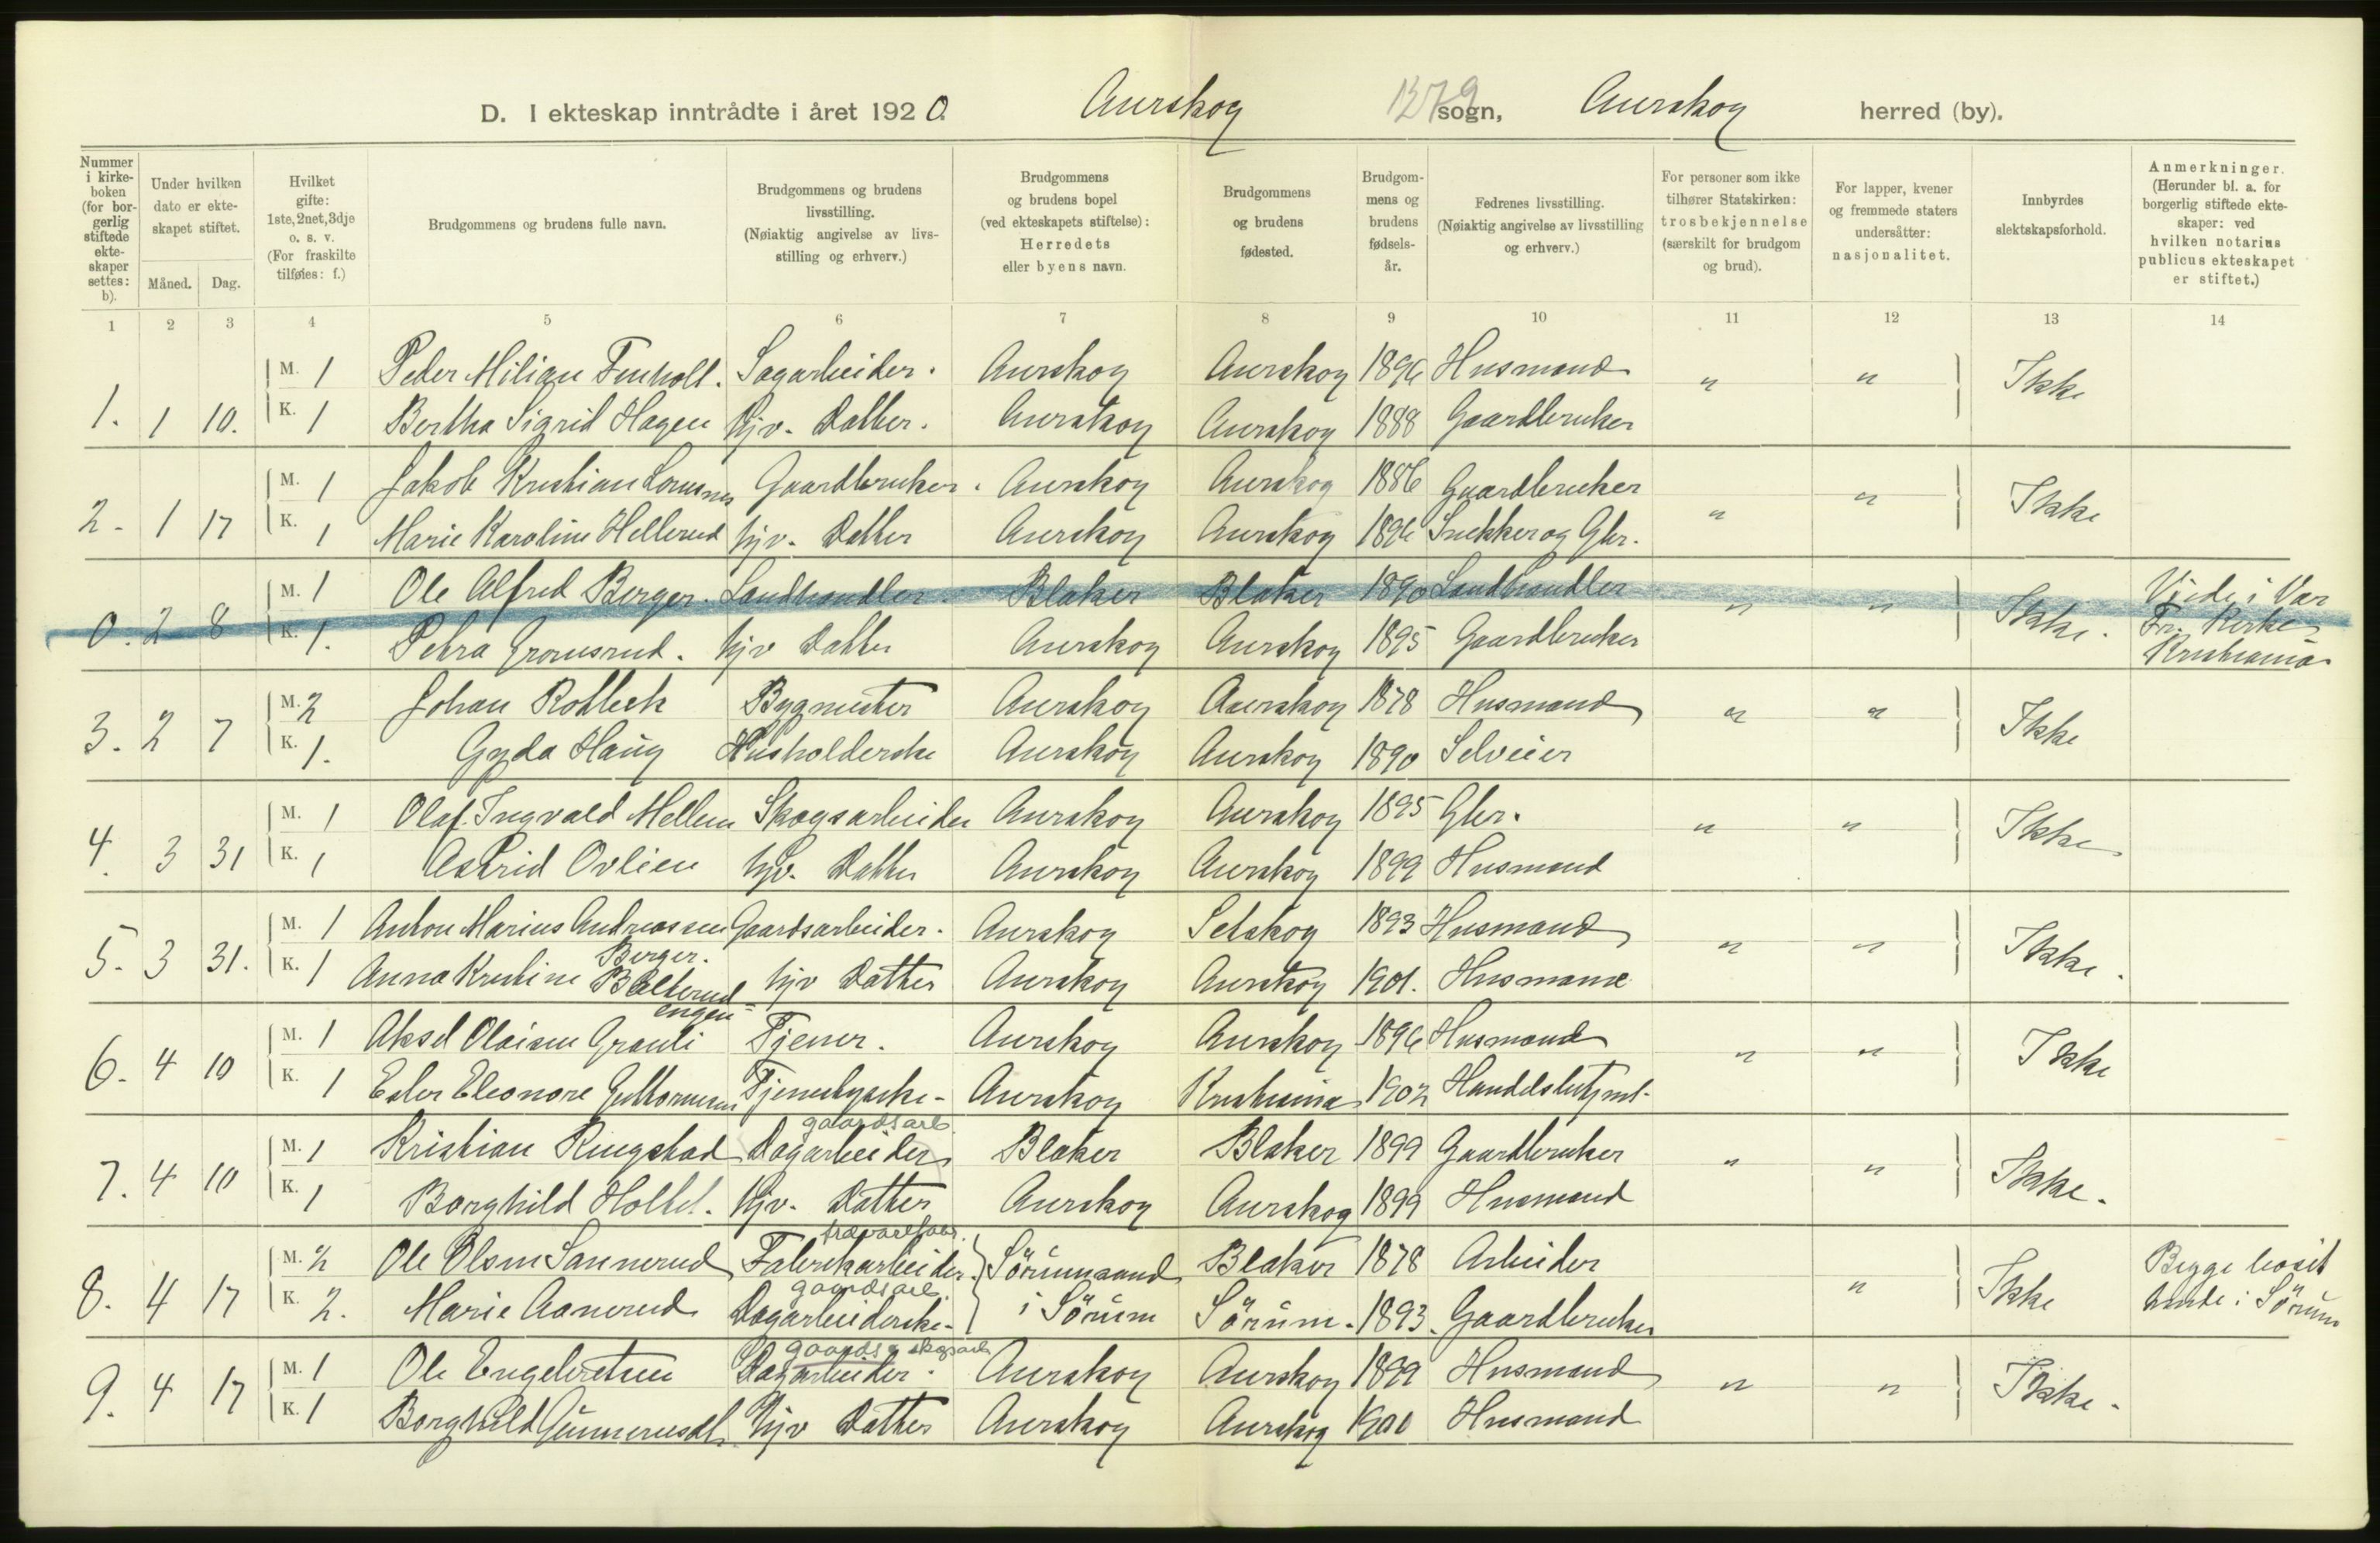 D. I ekteskap inntrådte i året 1920. Aurskog 1379 sogn, Aurskog herred (by).
Nummer i kirke-boken (for bor-gerlig stiftede ekte-skaper settes: b).
Under hvilken dato er ekte-skapet stiftet.
Måned. Dag.
Hvilket gifte: 1ste, 2net, 3dje o. s. v. (For fraskilte tilføies: f.)
Brudgommens og brudens fulle navn.
Brudgommens og brudens livsstilling. (Nøiaktig angivelse av livs-stilling og erhverv.)
Brudgommens og brudens bopel (ved ekteskapets stiftelse): Herredets eller byens navn.
Brudgommens og brudens fødested.
Brudgom-mens og brudens fødsels-år.
Fedrenes livsstilling. (Nøiaktig angivelse av livsstilling og erhverv.)
For personer som ikke tilhører Statskirken: trosbekjennelse (særskilt for brudgom og brud).
For lapper, kvener og fremmede staters undersåtter: nasjonalitet.
Innbyrdes slektskapsforhold.
Anmerkninger. (Herunder bl. a. for borgerlig stiftede ekte-skaper: ved hvilken notarius publicus ekteskapet er stiftet.)
1 2 3 4 5 6 7 8 9 10 11 12 13 14
M. 1 Peder Milian Finholt. Sagarbeider. Aurskog Aurskog 1896 Husmand " " Ikke
1. 1 10. K. 1 Bertha Sigrid Hagen Hjv. Datter. Aurskog Aurskog 1888 Gaardbruker
M. 1 Jakob Kristian Gaardbruker. Aurskog Aurskog 1886 Gaardbruker " Ikke
2. 1 17 K. 1 Marie Karoline Hellerud hjv. Datter Aurskog Aurskog 1896 Snekker og Gbr. "
M. 1 Ole Alfred Berger. Landhandler. Blaker Blaker 1890 Landhandler " " Ikke. Viede i Vor
0. 2 8 K. 1. Petra Gronsrud. hjv Datter Aurskog Aurskog 1895 Gaardbruker Fr. Kirke, Kristiania
M. 2 Johan Robbek Bygmester Aurskog Aurskog 1878 Husmand " " Ikke
3. 2 7 K. 1. Gyda Haug Husholderske Aurskog Aurskog 1890 Selveier
M. 1 Olaf Ingvald Mellem Skogsarbeider Aurskog Aurskog 1895 Gbr. " " Ikke
4. 3 31 K. 1 Astrid Ovlien hjv. Datter Aurskog Aurskog 1899 Husmand
M. 1 Anton Marius Andreassen Gaardsarbeider. Aurskog Setskog 1893 Husmand " " Ikke.
Berger.
5. 3 31. K. 1 Anna Kristine Bølterud hjv Datter Aurskog Aurskog 1901. Husmand
engen
M. 1 Aksel Olaisen Granli Tjener. Aurskog Aurskog 1896 Husmand " " Ikke
6. 4 10 K. 1 Ester Eleonore Guttormsen Tjenestepike- Aurskog Kristiania 1902 Handelsbetjent.
gaardsarb.
M. 1 Kristian Ringstad Dagarbeider Blaker Blaker 1899 Gaardbruker " " Ikke.
7. 4 10 K. 1 Borghild Holtet. Hjv. Datter Aurskog Aurskog 1899 Husmand
trævarefabr.
M. 2 Ole Olsen Sannerud Fabrikarbeider. Sörumsand Blaker 1878 Arbeider " Ikke Begge bosit
gaardsarb.
8. 4 17 K. 2. Marie Aanerud Dagarbeiderske- i Sörum Sörum. 1893. Gaardbruker i Sörum
gaards & skogsarb
M. 1 Ole Engebretsen Dagarbeider. Aurskog Aurskog 1899 Husmand " " Ikke.
9. 4 17 K. 1 Borghild Gunnerusdt. Hjv Datter Aurskog Aurskog 1900 Husmand